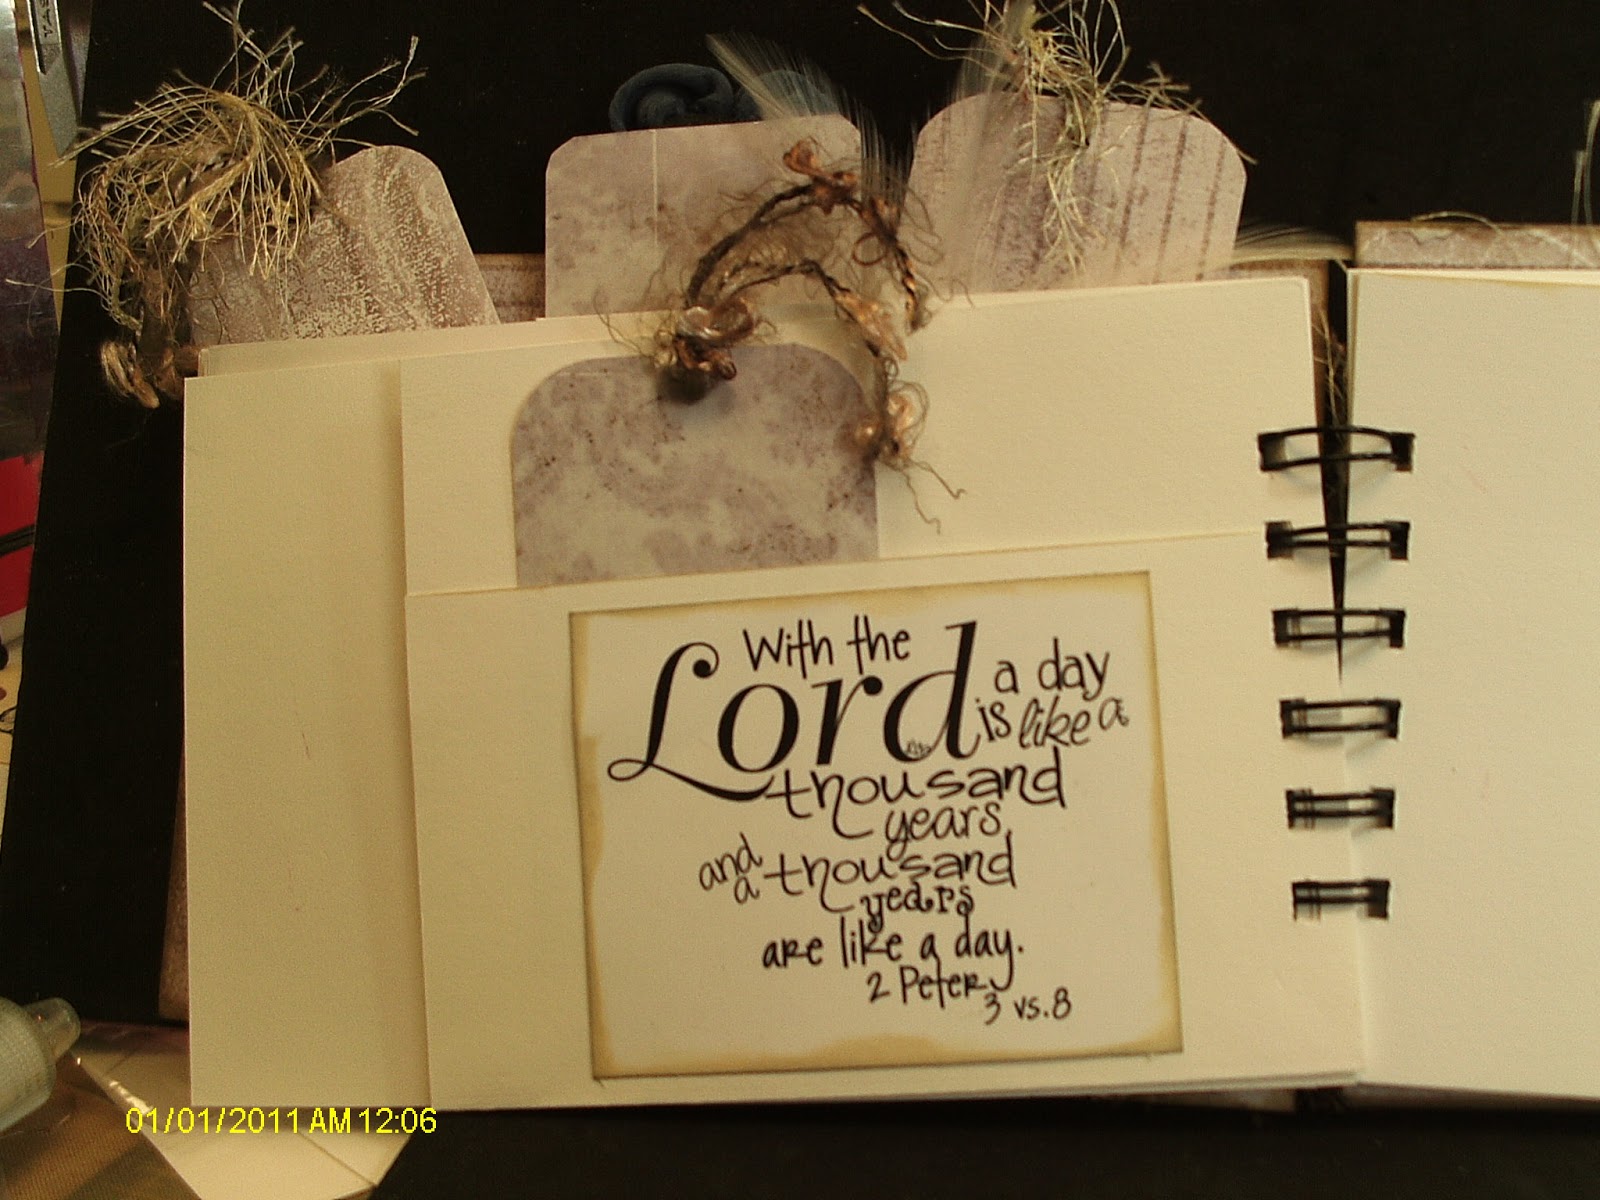 With the
Lord a day
is like a
thousand
years,
and a thousand
years
are like a day.
2 Peter
3 vs. 8
01/01/2011 AM 12:06